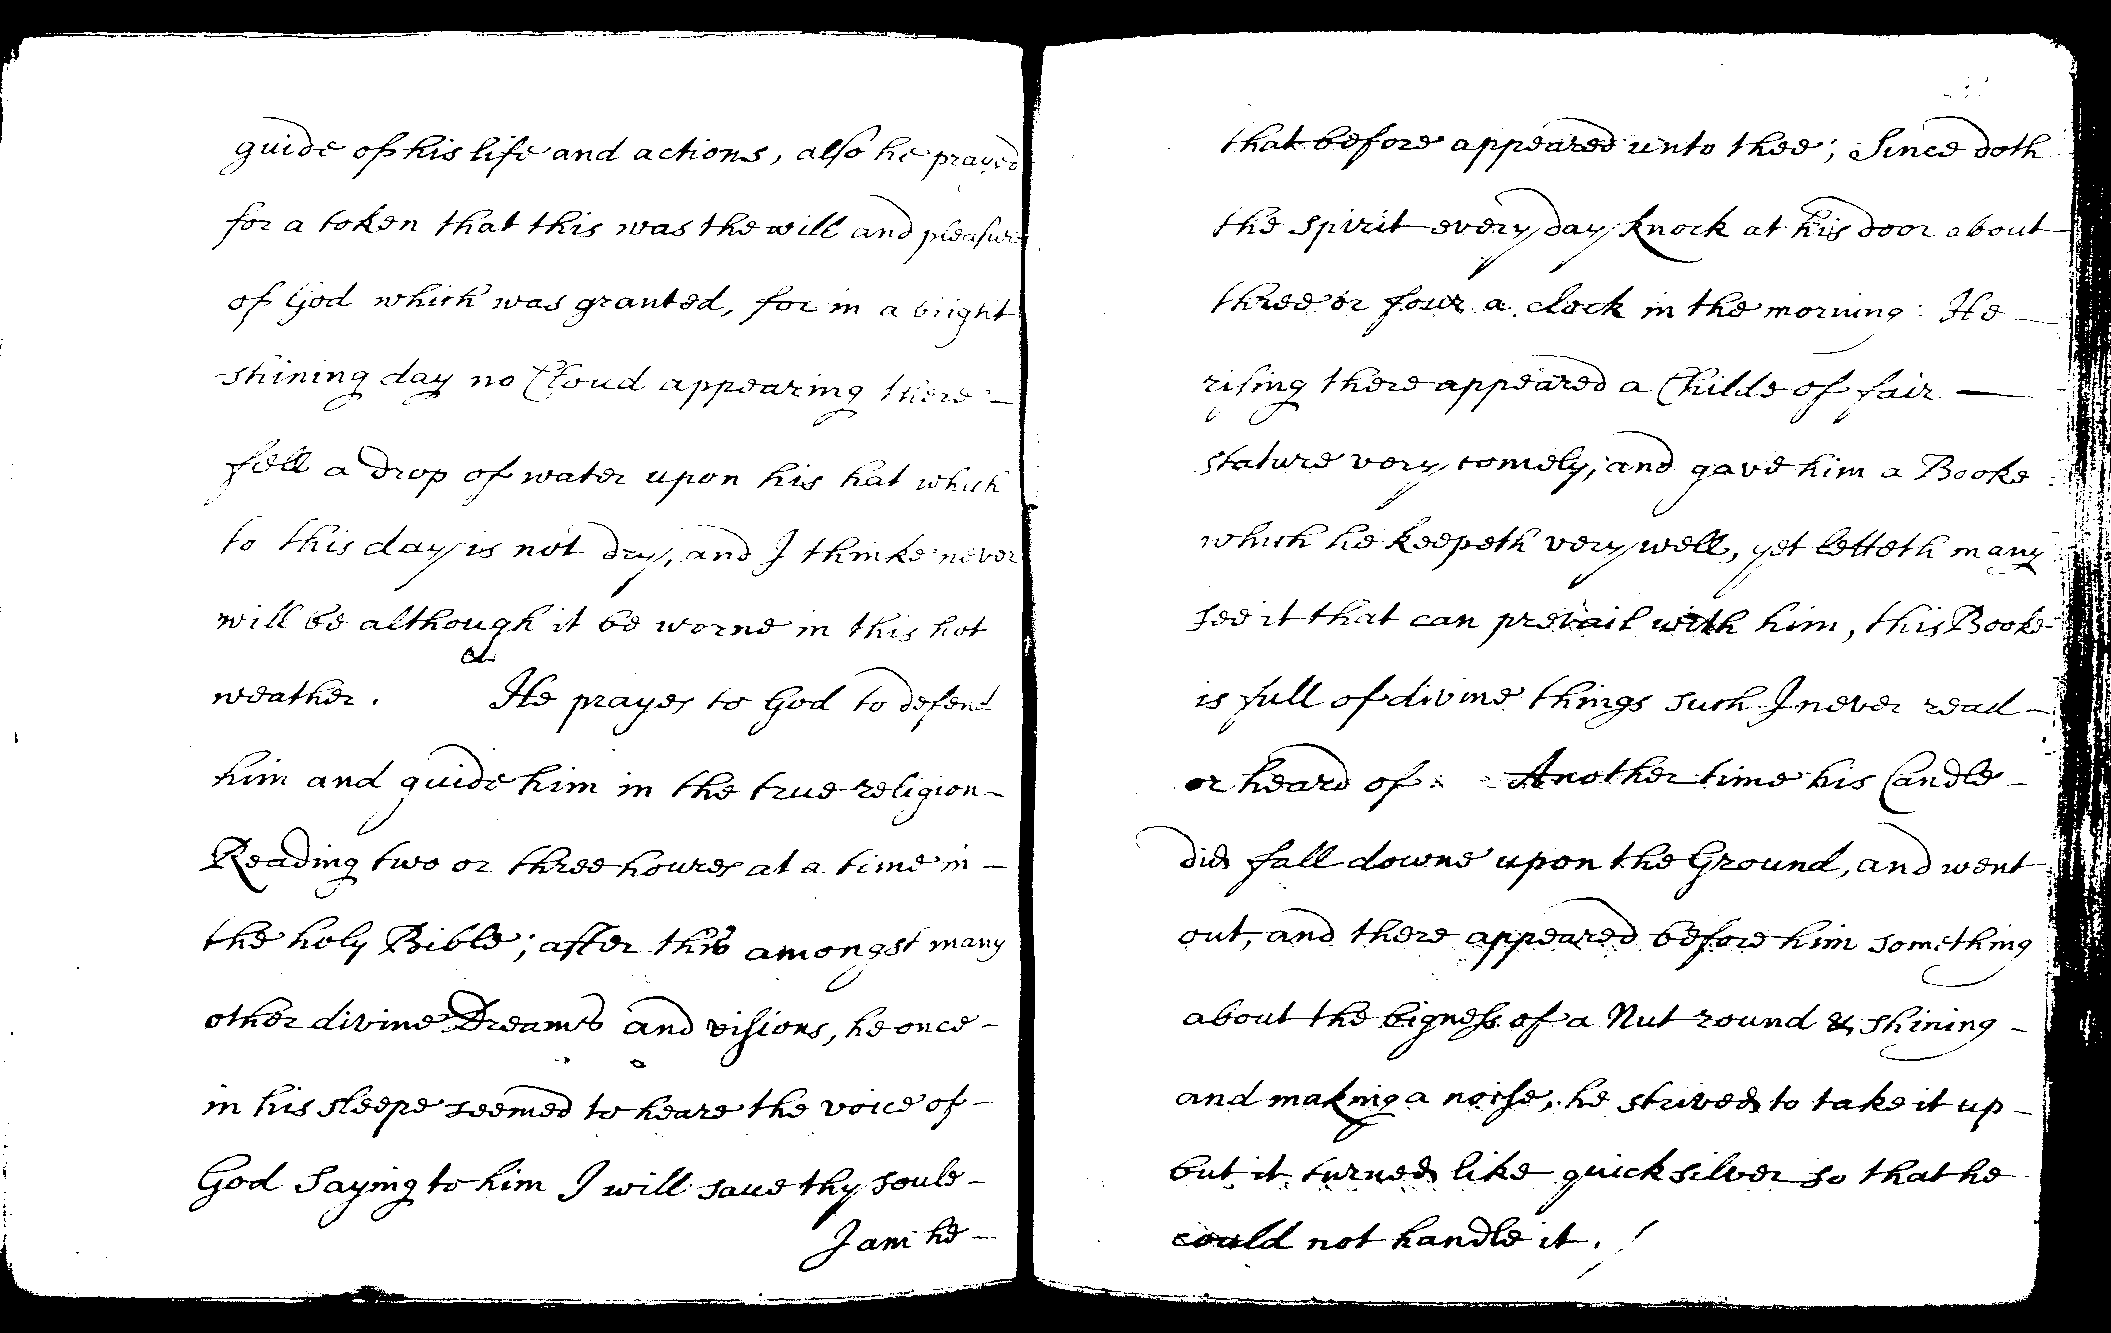 guide of his life and actions, also he prayed
for a token that this was the will and pleasure
of God which was granted, for in a bright
shining day no Cloud appearing there –
fell a drop of water upon his hat which
to this day is not dry, and I thinke never
will be although it be worne in this hot
weather. He prayes to God to defend
him and guide him in the true religion –
Reading two or three houres at a time in –
the holy Bible; after this amongst many
other divine Dreams and visions, he once –
in his sleepe seemed to heare the voice of –
God saying to him I will saue thy soule –
I am he –
that before appeared unto thee; Since doth
the spirit every day knock at his door about –
three or four a clock in the morning: He –
rising there appeared a Childe of fair —
stature very comely, and gave him a Booke
which he keepeth very well, yet letteth many
see it that can prevail with him, this Booke
is full of divine things such I never read –
or heard of: Another time his Candle –
did fall downe upon the Ground, and went
out, and there appeared before him something
about the bigness of a Nut round & shining –
and making a noise, he strived to take it up –
but it turned like quicksilver so that he
could not handle it. /